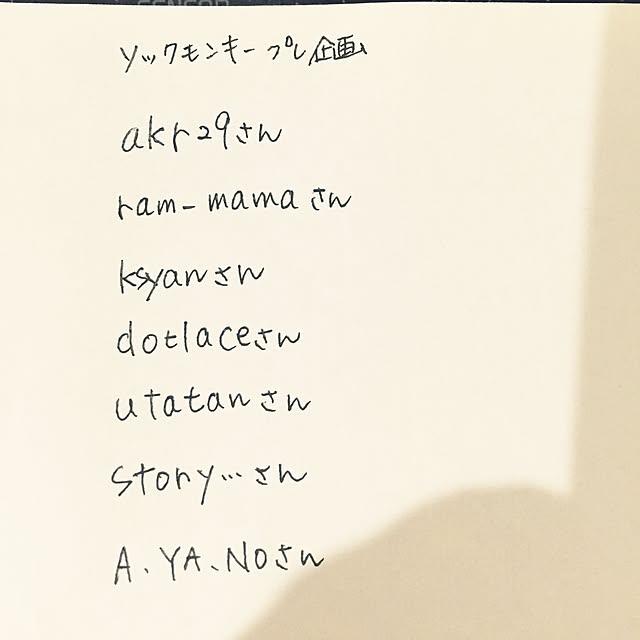 ソックモンキープレ企画
akr29さん
ram-mamaさん
ksyanさん
dotlaceさん
utatanさん
story…さん
A、YA、NOさん